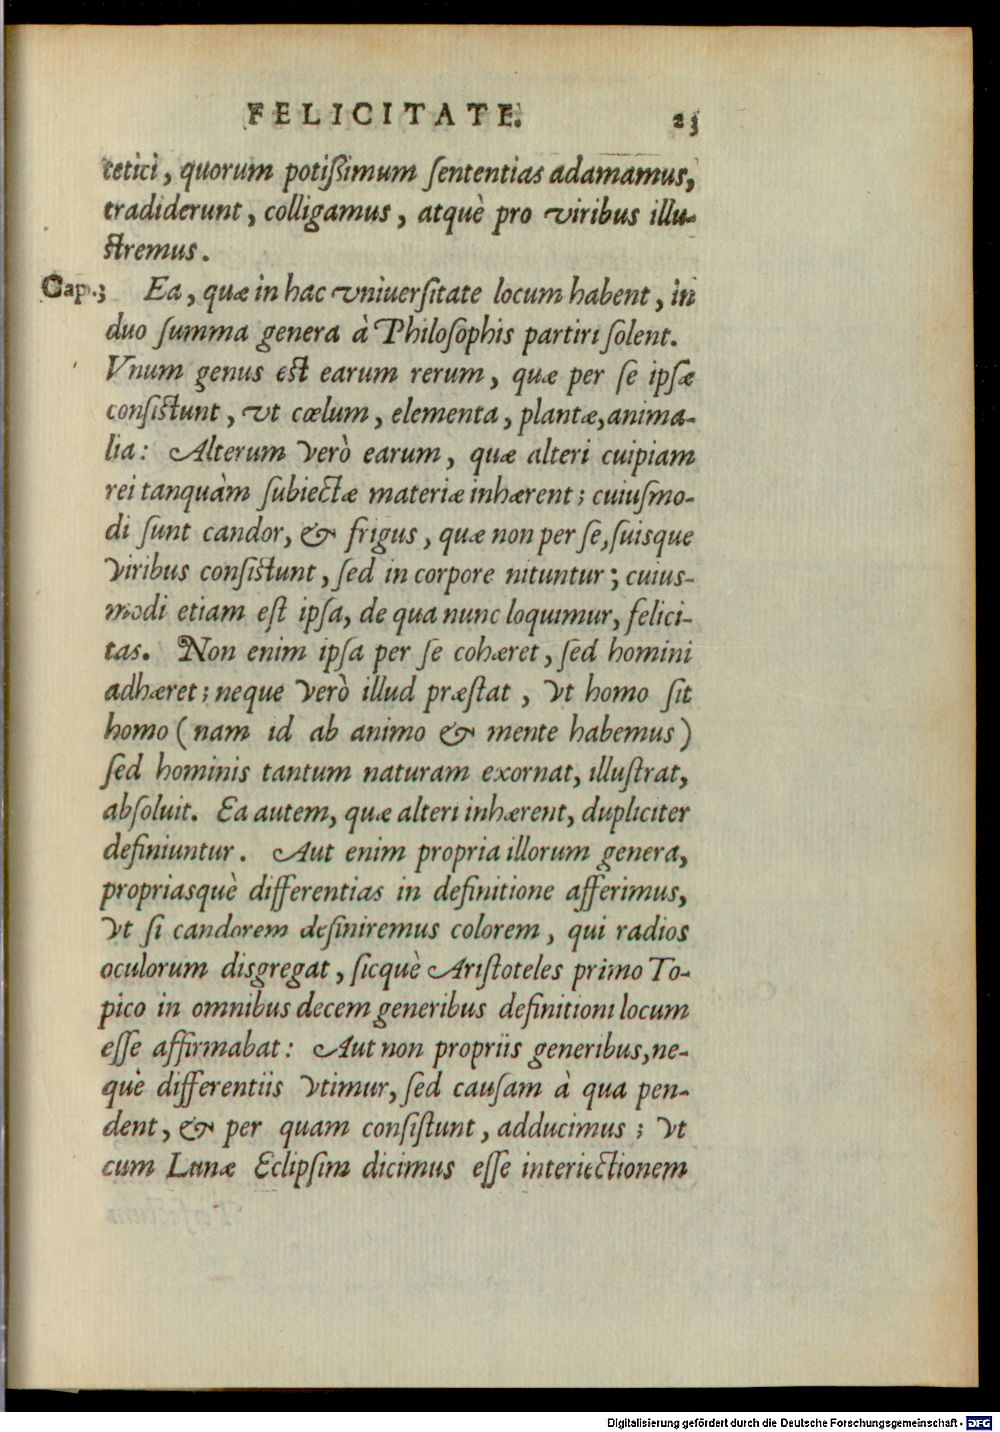 FELICITATE. 23
tetici, quorum potißimum ſententias adamamus,
tradiderunt, colligamus, atquè pro viribus illu-
ſtremus.
Cap.3 Ea, quæ in hac vniuerſitate locum habent, in
duo ſumma genera à Philoſophis partiri ſolent.
Vnum genus eſt earum rerum, quæ per ſe ipſæ
conſiſtunt, vt cœlum, elementa, plantæ, anima-
lia: Alterum verò earum, quæ alteri cuipiam
rei tanquàm ſubiectæ materiæ inhærent; cuiuſmo-
di ſunt candor, & frigus, quæ non per ſe, ſuisque
viribus conſiſtunt, ſed in corpore nituntur; cuius-
modi etiam eſt ipſa, de qua nunc loquimur, felici-
tas. Non enim ipſa per ſe cohæret, ſed homini
adhæret; neque verò illud præſtat, vt homo ſit
homo (nam id ab animo & mente habemus)
ſed hominis tantum naturam exornat, illuſtrat,
abſoluit. Ea autem, quæ alteri inhærent, dupliciter
definiuntur. Aut enim propria illorum genera,
propriasquè differentias in definitione afferimus,
vt ſi candorem definiremus colorem, qui radios
oculorum disgregat, ſicquè Ariſtoteles primo To-
pico in omnibus decem generibus definitioni locum
eſſe affirmabat: Aut non propriis generibus, ne-
què differentiis vtimur, ſed cauſam à qua pen-
dent, & per quam conſiſtunt, adducimus; vt
cum Lunæ Eclipſim dicimus eſſe interiectionem
Digitalisierung gefördert durch die Deutsche Forschungsgemeinschaft - DFG